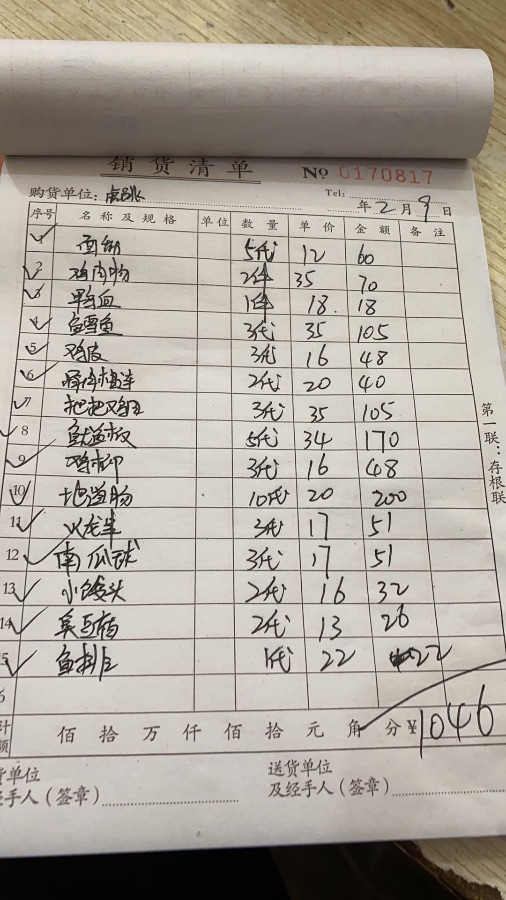 销货清单 No 0170817
购货单位: Tel:
年2月9日
序号 名称及规格 单位 数量 单价 金额 备注
1 面筋 5代 12 60
2 鸡肉肠 2件 35 70
3 鸭血 1件 18 18
4 鱼雪鱼 3代 35 105
5 鸡皮 3代 16 48
6 2代 20 40
7 3代 35 105
8 鱿鱼板 5代 34 170
9 鸡柳 3代 16 48
10 地道肠 10代 20 200
11 火龙 3代 17 51
12 南瓜球 3代 17 51
13 小馒头 2代 16 32
14 臭豆腐 2代 13 26
15 鱼排 1代 22 22
佰拾万仟佰拾元角分¥1046
货单位 送货单位
经手人(签章) 及经手人(签章)
第一联:存根联